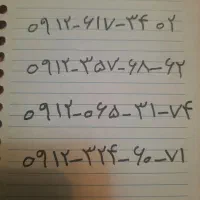 ۰۹۱۲-۶۱۷-۳۴ ۰۲
۰۹۱۲-۳۵۷-۶۸-۶۲
۰۹۱۲-۰۶۵-۳۱-۷۴
۰۹۱۲-۳۲۴-۶۰-۷۱